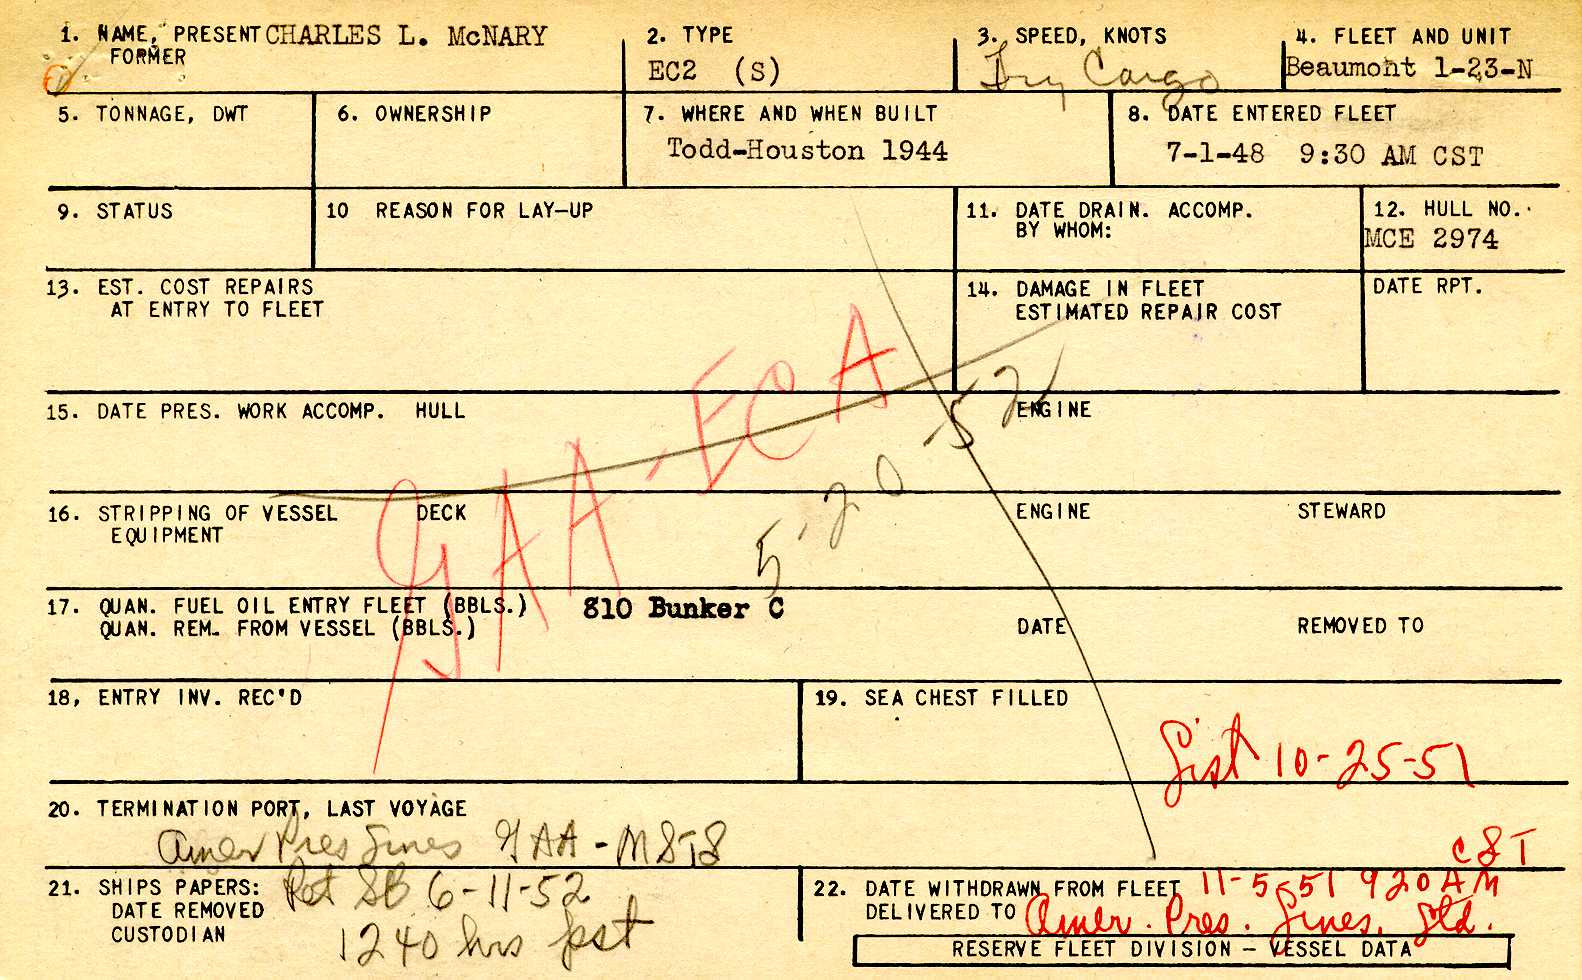 1. NAME, PRESENT CHARLES L. McNARY
FORMER
2. TYPE
EC2 (S)
3. SPEED, KNOTS
Dry Cargo
4. FLEET AND UNIT
Beaumont 1-23-N
5. TONNAGE, DWT
6. OWNERSHIP
7. WHERE AND WHEN BUILT
Todd-Houston 1944
8. DATE ENTERED FLEET
7-1-48 9:30 AM CST
9. STATUS
10 REASON FOR LAY-UP
11. DATE DRAIN. ACCOMP.
BY WHOM:
12. HULL NO.
MCE 2974
13. EST. COST REPAIRS
AT ENTRY TO FLEET
14. DAMAGE IN FLEET
ESTIMATED REPAIR COST
DATE RPT.
GAA-ECA
5-20-52
15. DATE PRES. WORK ACCOMP. HULL
ENGINE
16. STRIPPING OF VESSEL DECK
EQUIPMENT
ENGINE
STEWARD
17. QUAN. FUEL OIL ENTRY FLEET (BBLS.) 810 Bunker C
QUAN. REM. FROM VESSEL (BBLS.)
DATE
REMOVED TO
18, ENTRY INV. REC'D
19. SEA CHEST FILLED
List 10-25-51
20. TERMINATION PORT, LAST VOYAGE
Amer Pres Lines GAA-MSTS
21. SHIPS PAPERS: Ret SB 6-11-52
DATE REMOVED
CUSTODIAN 1240 hrs pst
CST
22. DATE WITHDRAWN FROM FLEET 11-5-51 920AM
DELIVERED TO Amer. Pres. Lines, Ltd.
RESERVE FLEET DIVISION – VESSEL DATA